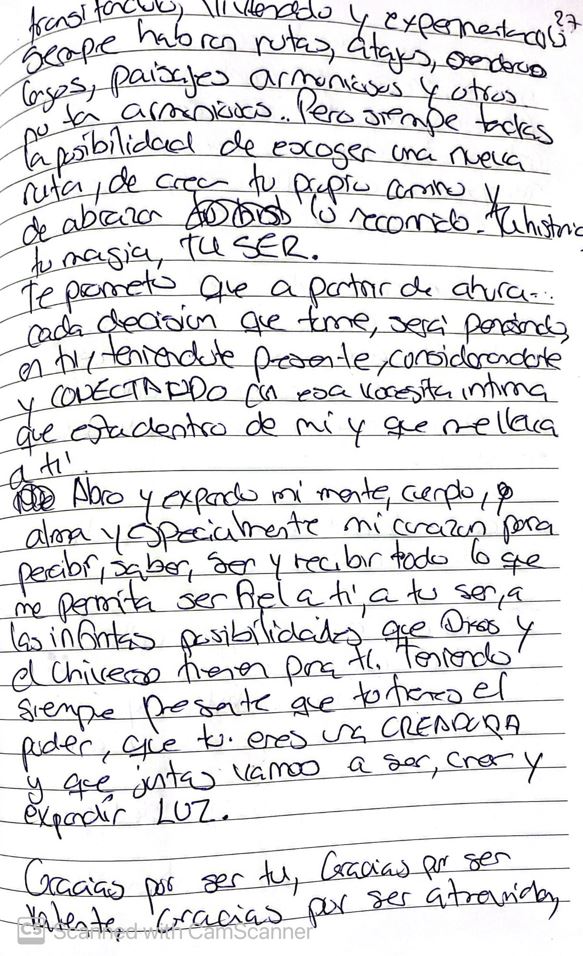 27
transitando, viviendo y experimentando
siempre habran rutas, atajos,
largos, paisajes armoniosos y otros
no tan armoniosos.. Pero siempre
la posibilidad de escoger una nueva
ruta, de crear tu propio camino y
de abrazar lo recorrido. Tu historia
tu magia, TU SER.
Te prometo que a partir de ahora...
cada decision que tome, será pensando
en ti, teniendote presente, considerandote
y CONECTANDO con esa vocesita intima
que esta dentro de mi y que me lleva
a ti.
Abro y expando mi mente, cuerpo,
alma y especialmente mi corazon para
percibir, saber, ser y recibir todo lo que
me permita ser fiel a ti, a tu ser, a
las infinitas posibilidades que Dios y
el tienen para ti. Teniendo
siempre presente que tu tienes el
poder, que tu eres una CREADORA
y que juntas vamos a ser, crear y
expandir LUZ.
Gracias por ser tu, Gracias por ser
valiente, Gracias por ser atrevida,
CS Scanned with CamScanner